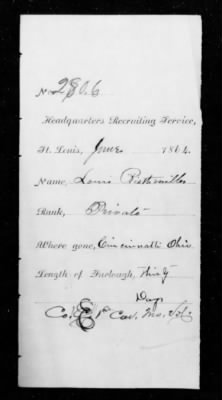 No. 2806
Headquarters Recruiting Service,
St. Louis, June 1864.
Name, Louis
Rank, Private
Where gone, Cincinnatti Ohio
Length of Furlough, Thirty
Days
Co. E 1st Cav. Mo. Vols